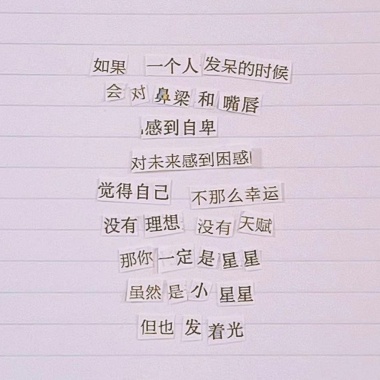 如果 一个人 发呆的时候
会 对 鼻梁 和 嘴唇
感到自卑
对未来感到困惑
觉得自己 不那么幸运
没有 理想 没有 天赋
那你 一定 是 星星
虽然 是 小 星星
但也 发 着光